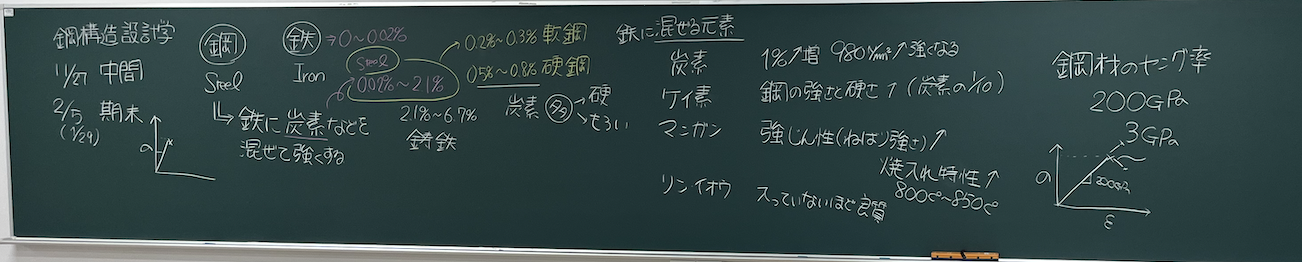 鋼構造設計学
11/27 中間
2/5 期末
(1/29)
σ
鋼
Steel
鉄 → 0~0.02%
Iron
Steel
0.02%~2.1%
2.1%~6.7%
鋳鉄
→ 鉄に炭素などを
混ぜて強くする
0.2%~0.3% 軟鋼
0.5%~0.8% 硬鋼
炭素 多 硬
もろい
鉄に混ぜる元素
炭素 1%↑増 980N/mm²↑強くなる
ケイ素 鋼の強さと硬さ↑(炭素の1/10)
マンガン 強じん性(ねばり強さ)↑
焼入れ特性↑
800℃~850℃
リンイオウ 入っていないほど良質
鋼材のヤング率
200GPa
3GPa
σ
200GPa
ε